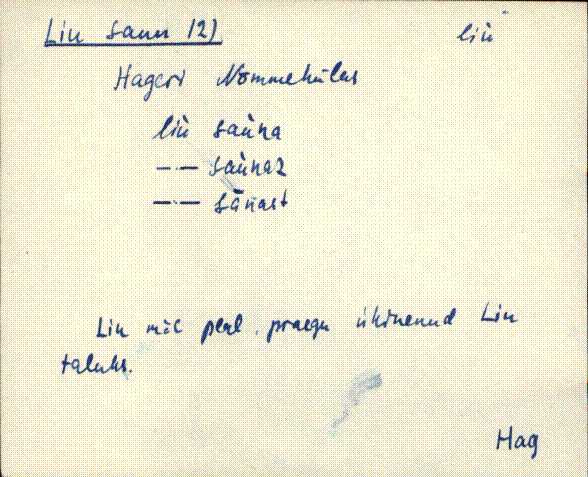 Liu saun /2/ liù
Hageri Nõmmeküləs
liù saùna
—·— saùnaz
—·— sānast
Liu mäe peal. praegu ühinenud Liu
taluks.
Hag